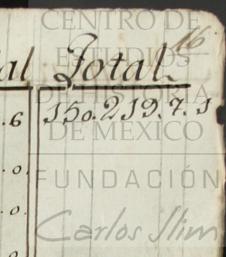 16
al Total.
.6 150.219.7.1
.0.
.0.
.0
CENTRO DE
ESTUDIOS
DE HISTORIA
DE MÉXICO
FUNDACIÓN
Carlos Slim